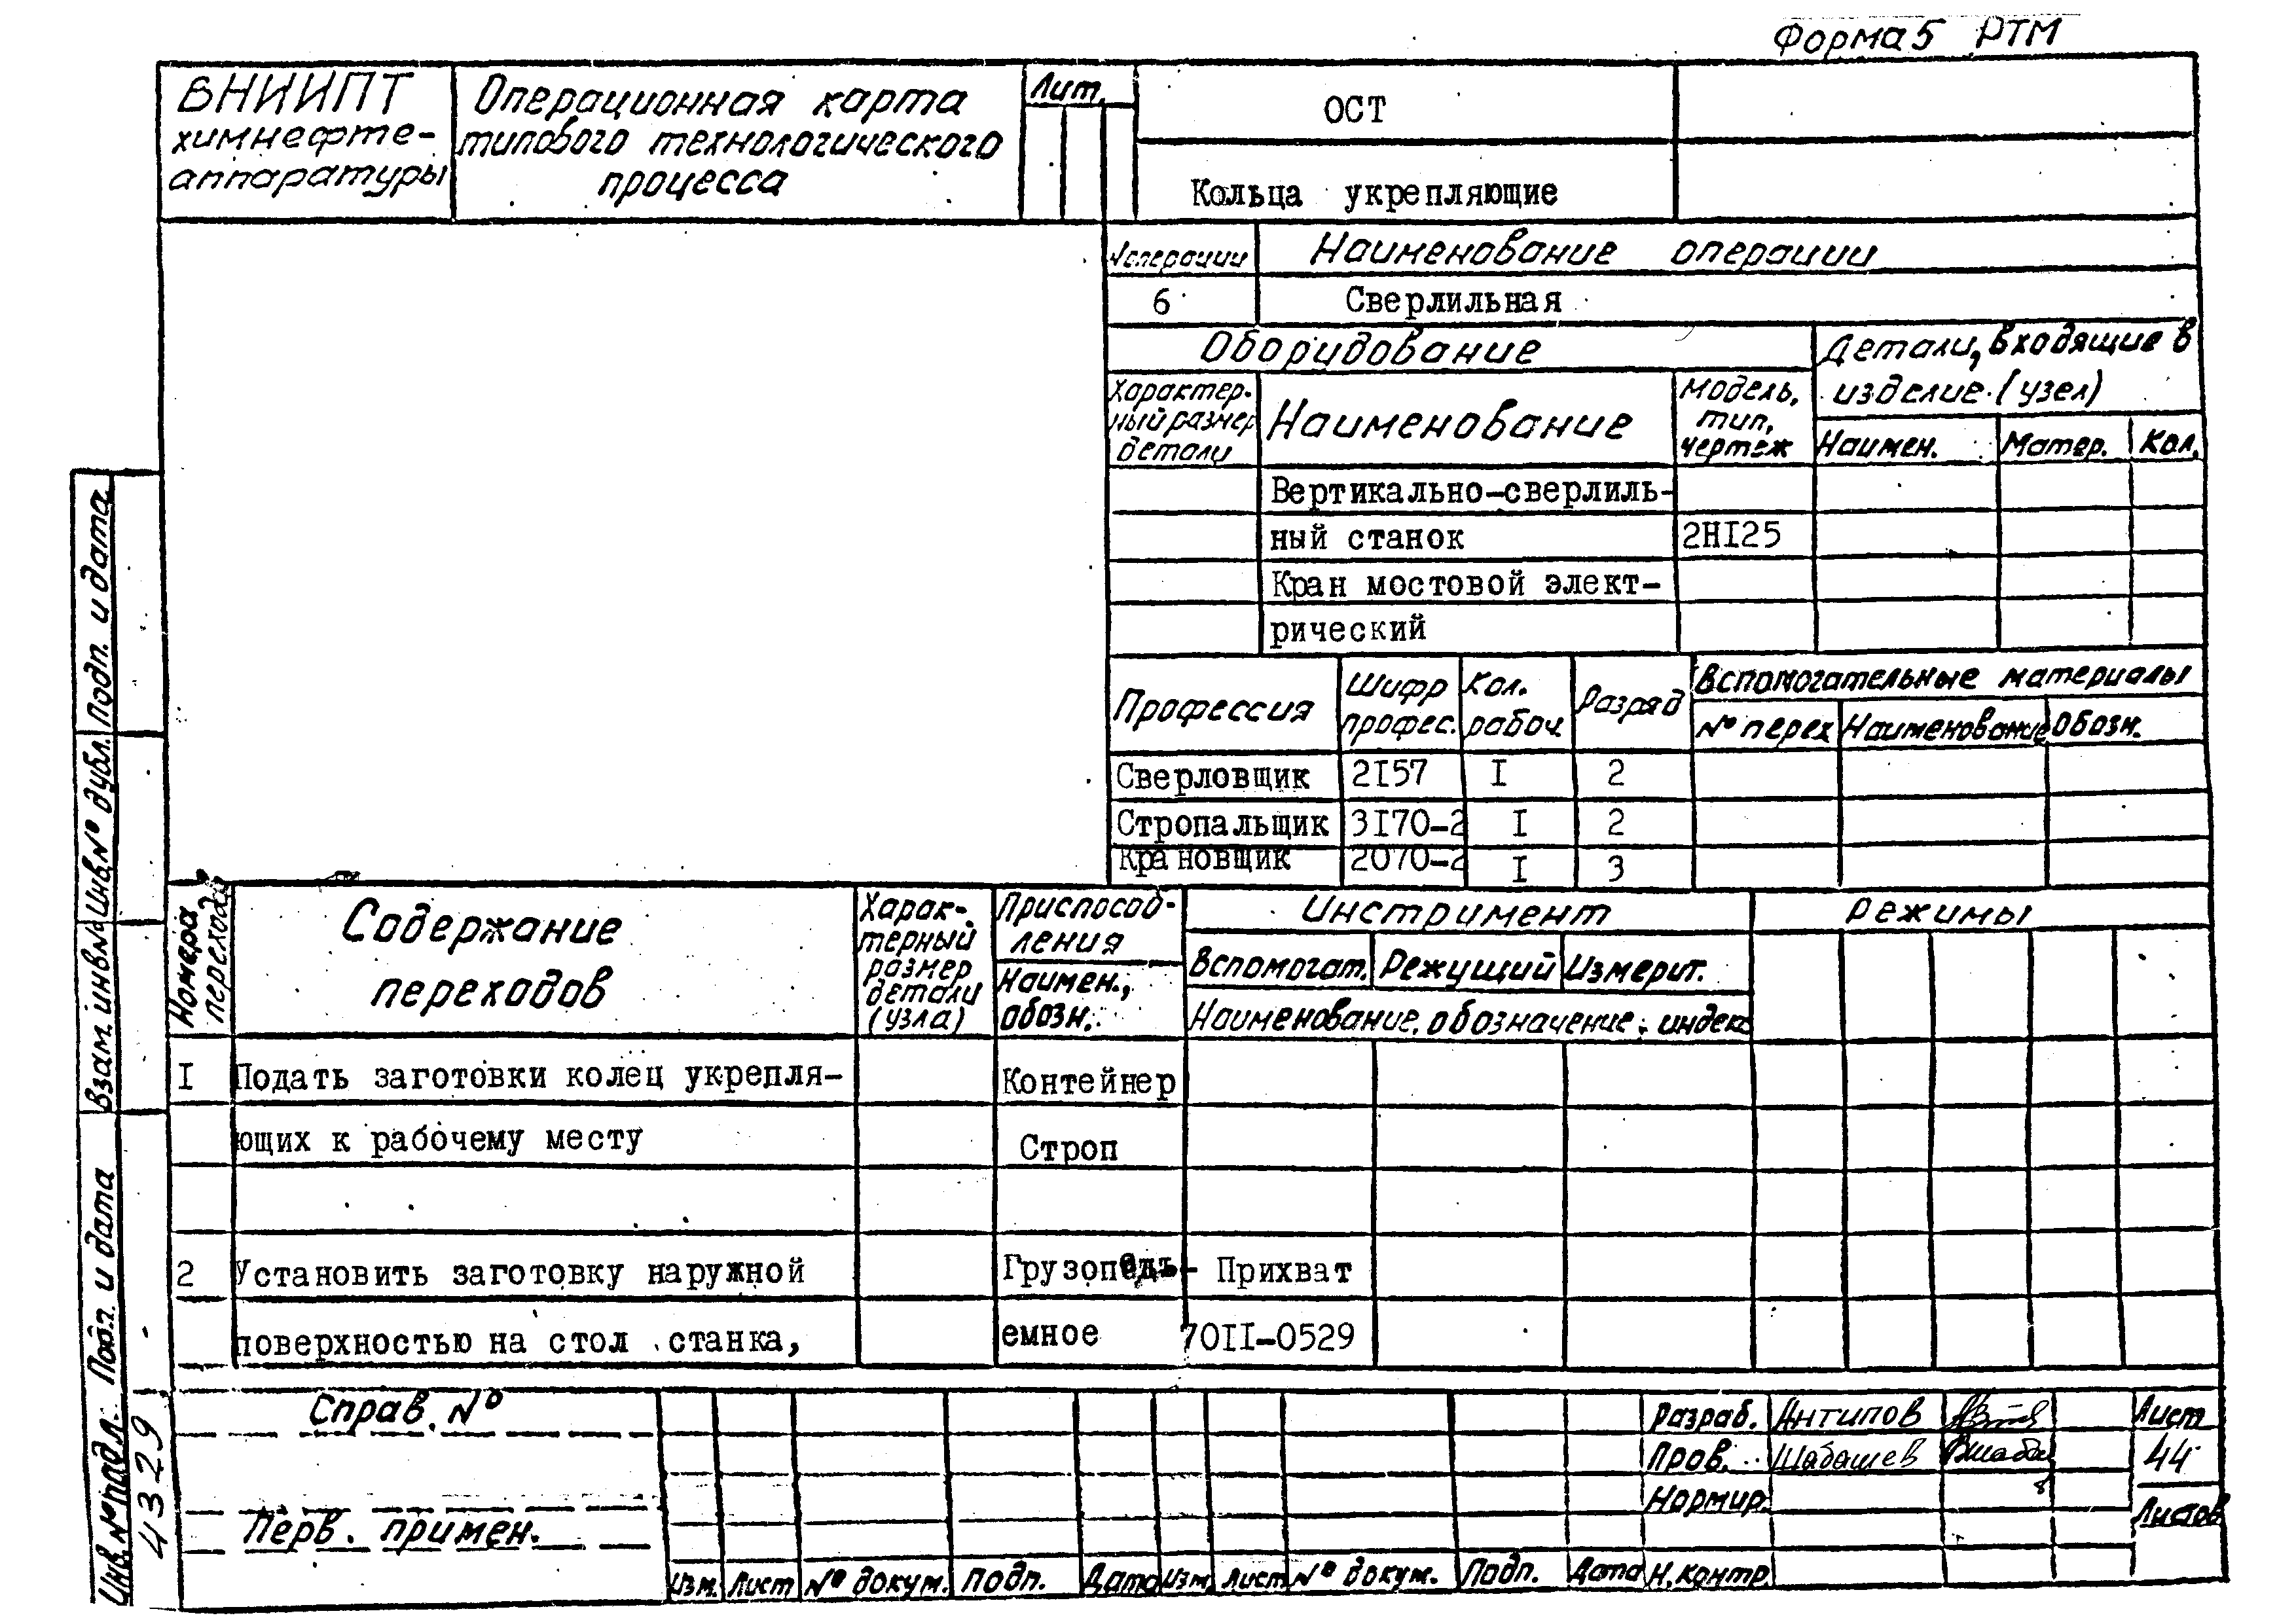 Форма 5 РТМ
ВНИИПТ
химнефте-
аппаратуры
Операционная карта
типового технологического
процесса
Лит.
ОСТ
Кольца укрепляющие
№ операции
Наименование операции
6
Сверлильная
Оборудование
Детали, входящие в
изделие (узел)
Характер-
ный размер
детали
Наименование
Модель,
тип,
чертеж
Наимен.
Матер.
Кол.
Вертикально-сверлиль-
ный станок
2НI25
Кран мостовой элект-
рический
Профессия
Шифр
профес.
Кол.
рабоч.
Разряд
Вспомогательные материалы
№ перех
Наименование
Обозн.
Сверловщик 2I57 I 2
Стропальщик 3I70-2 I 2
Крановщик 2070-2 I 3
Номера
перехода
Содержание
переходов
Харак-
терный
размер
детали
(узла)
Приспособ-
ления
Наимен.,
обозн.
Инстримент
Вспомогат.
Режущий
Измерит.
Наименование, обозначение, индекс
режимы
I Подать заготовки колец укрепля- Контейнер
ющих к рабочему месту Строп
2 Установить заготовку наружной Грузоподъ- Прихват
поверхностью на стол станка, емное 70II-0529
Справ. №
Перв. примен.
Изм. Лист № докум. Подп. Дата Изм. Лист № докум. Подп. Дата
Разраб. Антипов
Пров. Шабашев
Нормир.
Н. контр.
Лист
44
Листов
Подп. и дата
Инв. № дубл.
Взам. инв №
Подп. и дата
Инв. № подл.
43291